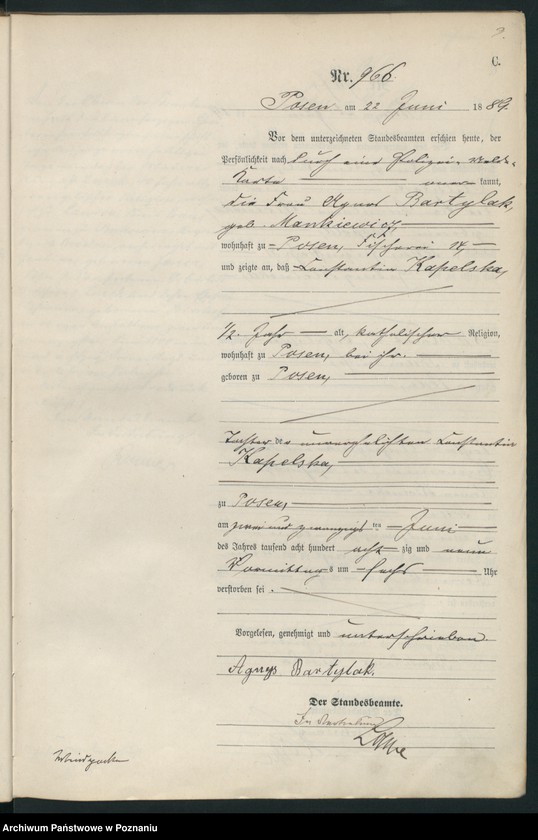 C.
Nr. 966
Posen am 22 Juni 1889.
Vor dem unterzeichneten Standesbeamten erschien heute, der
Persönlichkeit nach durch eine Polizei-Melde-
Karte anerkannt,
die Frau Agnes Bartylak,
geb. Mankiewicz,
wohnhaft zu Posen, Fischerei 14,
und zeigte an, daß Constantia Kapelska,
1/2 Jahr alt, katholischer Religion,
wohnhaft zu Posen, bei ihr.
geboren zu Posen,
Tochter der unverehelichten Constantia
Kapelska,
zu Posen,
am zwei und zwanzigsten Juni
des Jahres tausend acht hundert achtzig und neun
Vormittags um sechs Uhr
verstorben sei.
Vorgelesen, genehmigt und unterschrieben
Agnes Bartylak.
Der Standesbeamte.
In Vertretung
Archiwum Państwowe w Poznaniu